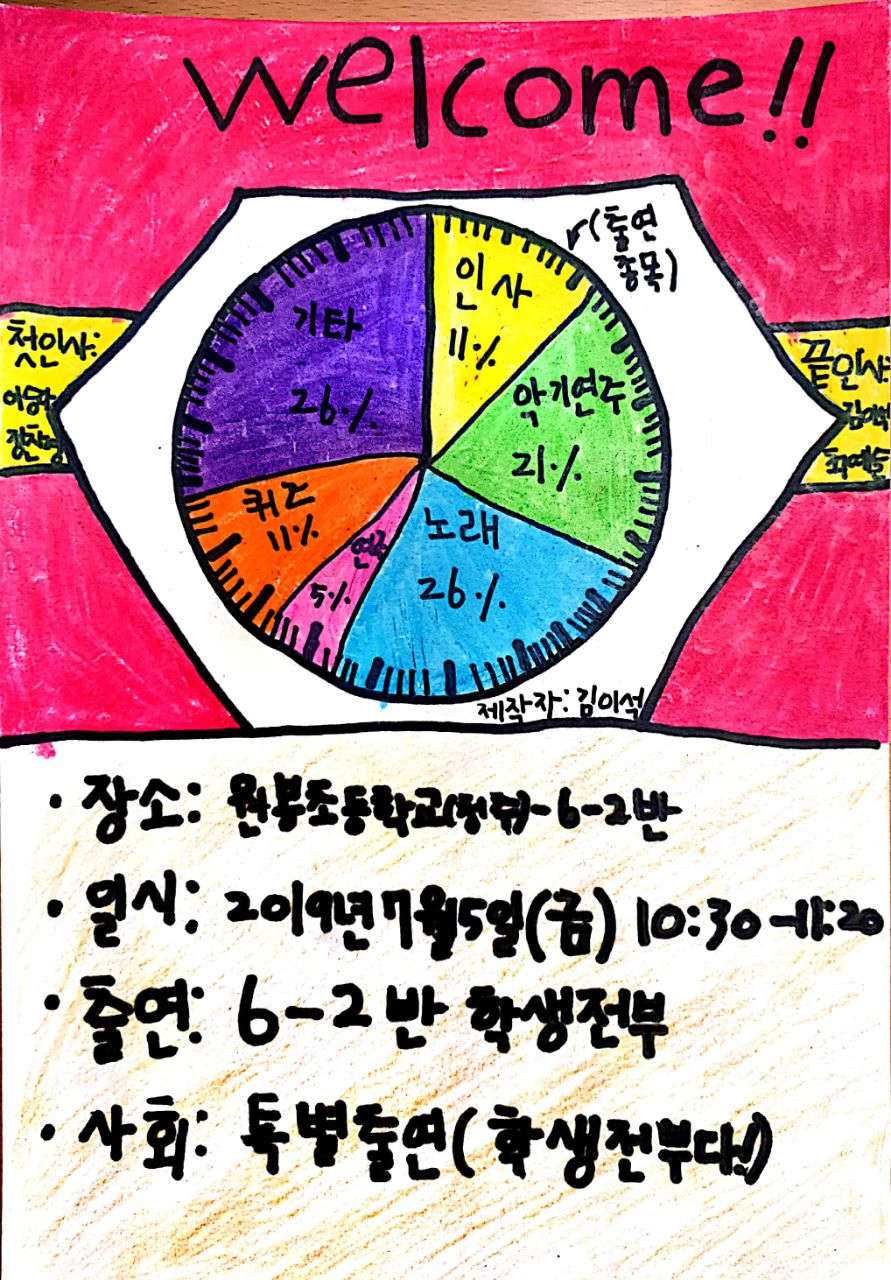 welcome!!
(출연
종목)
인사
11%
악기연주
21%
노래
26%
연극
5%
퀴즈
11%
기타
26%
첫인사:
끝인사:
김이석
최예
제작자: 김이석
· 장소: 원봉초등학교(청주)-6-2반
· 일시: 2019년7월5일(금) 10:30-11:20
· 출연: 6-2반 학생전부
· 사회: 특별출연(학생전부다!)